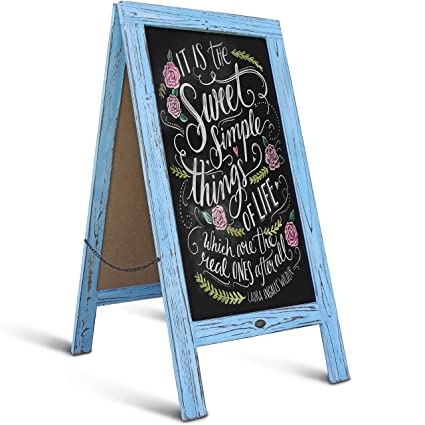 IT IS THE
Sweet
Simple
things
OF LIFE
Which are the
real ONES after all
LAURA INGALLS WILDER